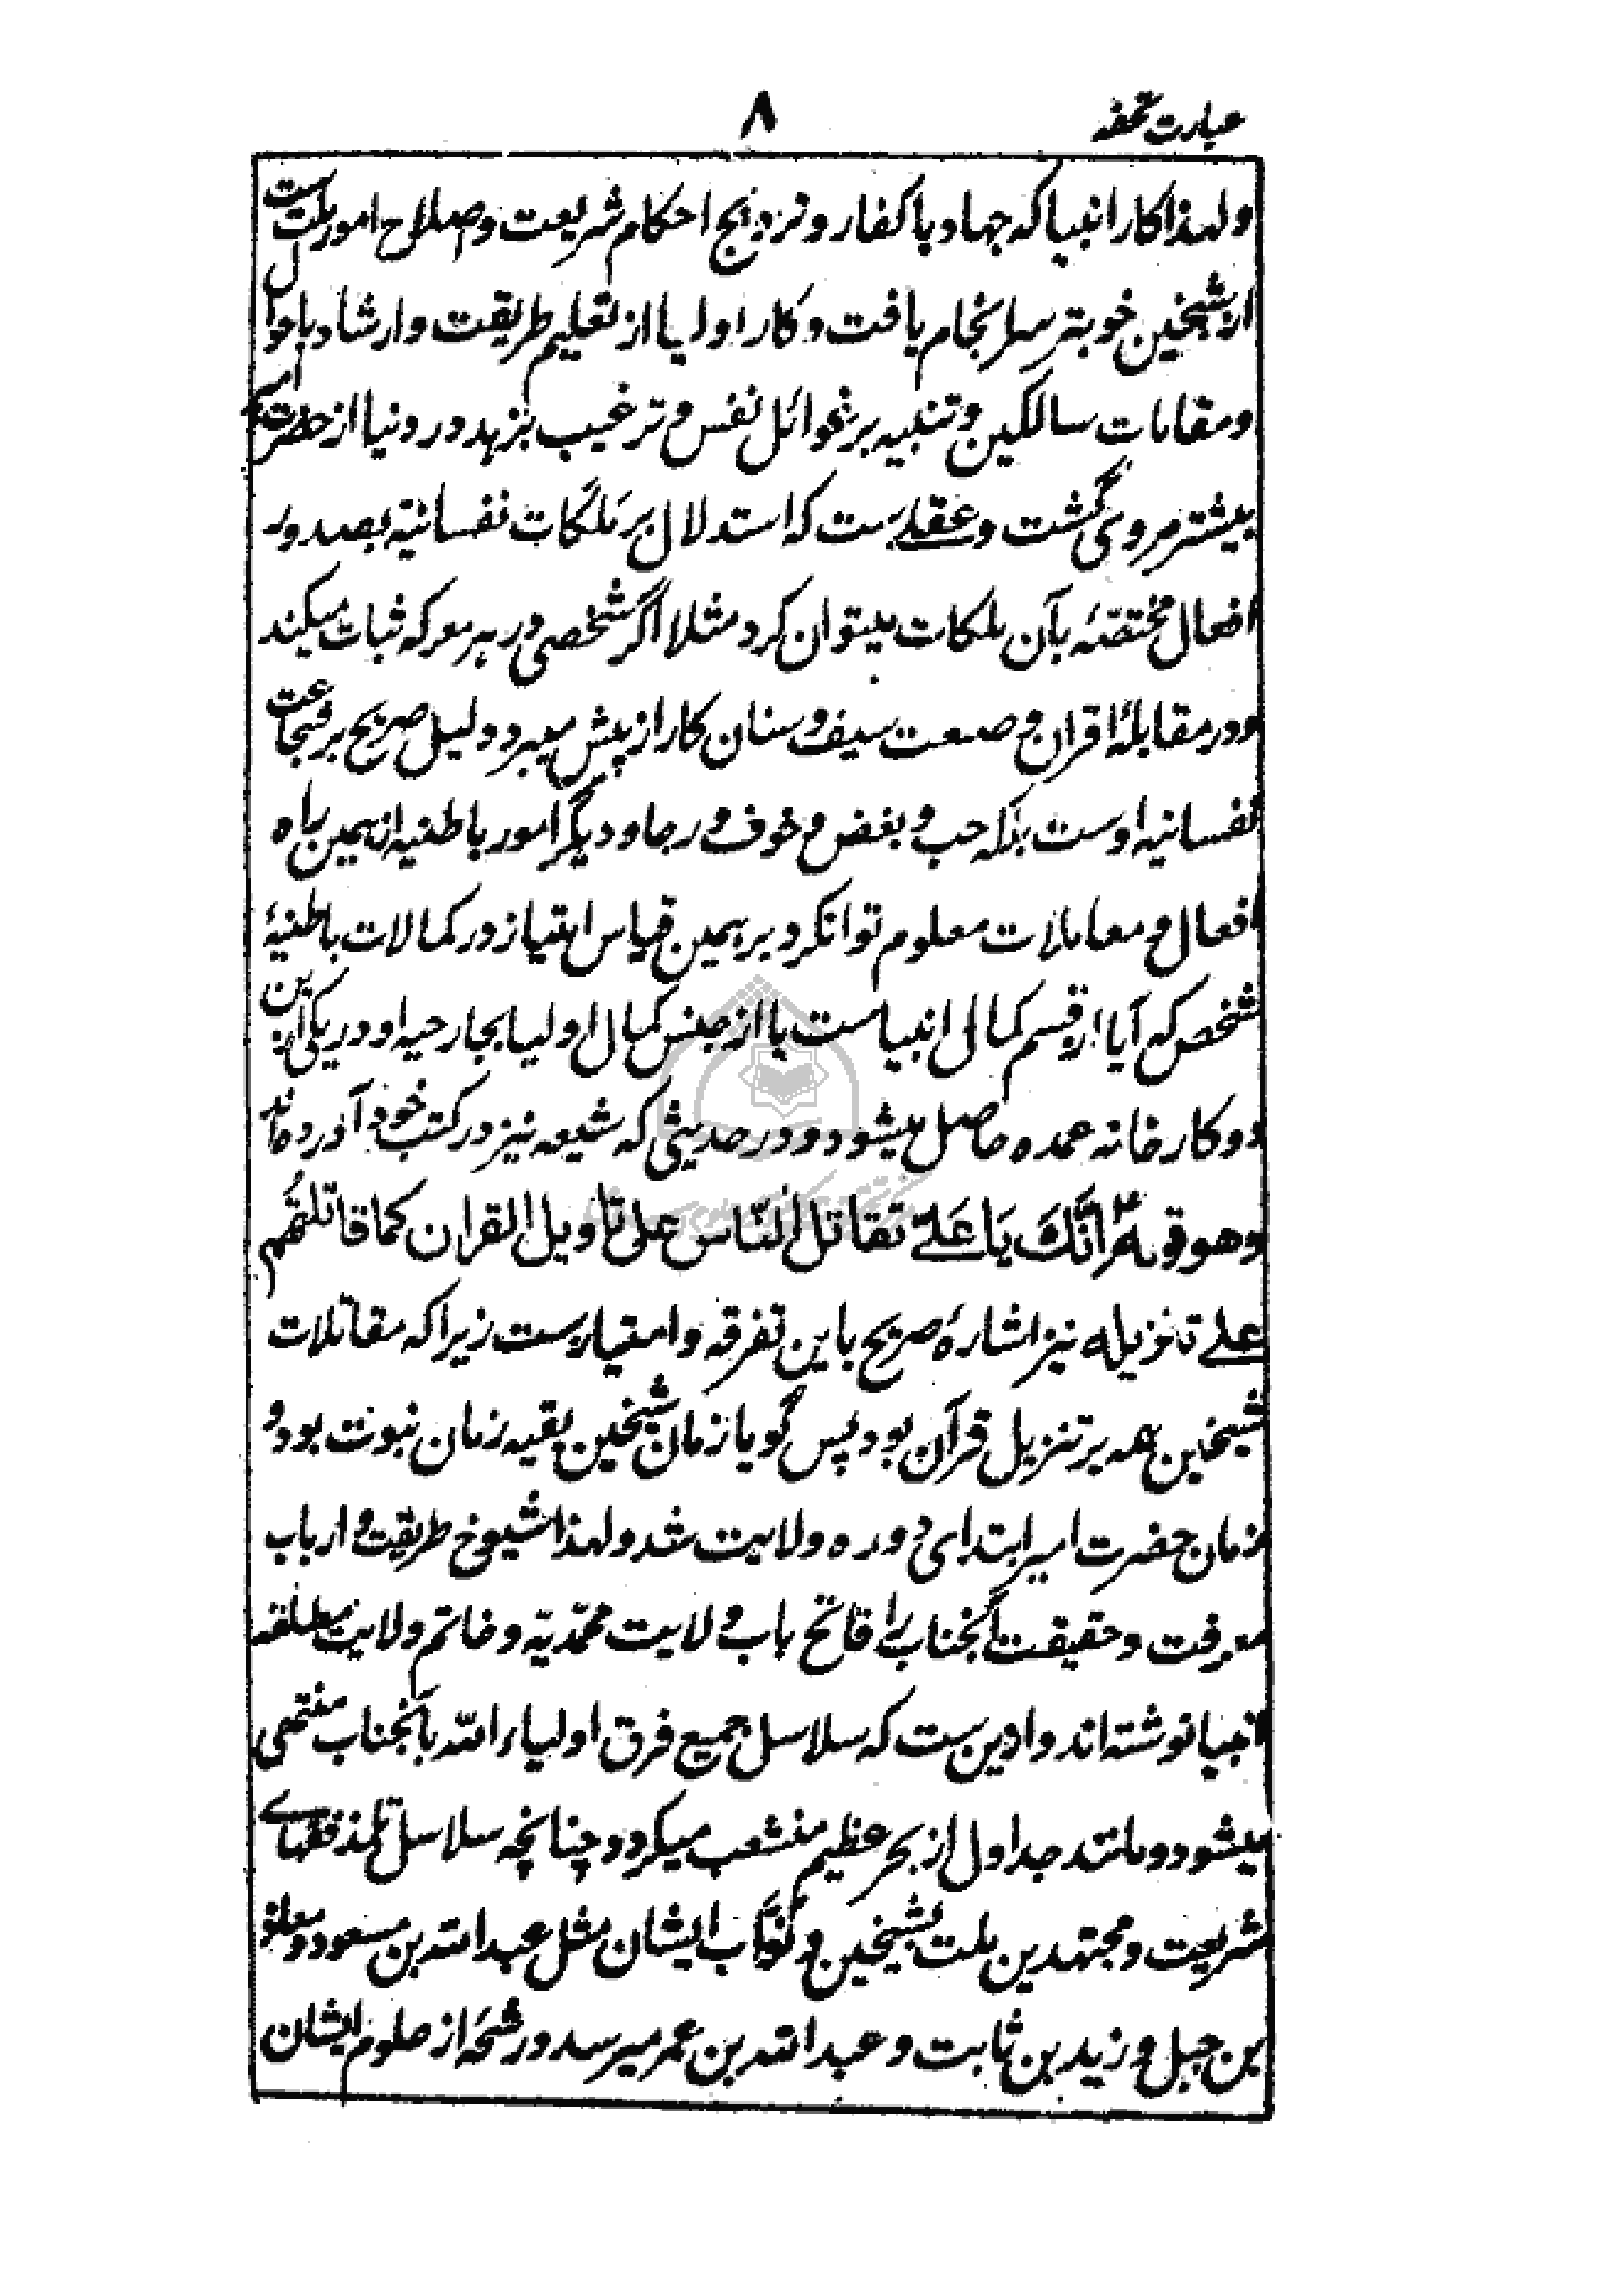 عبارت تحفه
۸
ولهذا کار انبیا که جهاد با کفار و ترویج احکام شریعت و صلاح امور ملت ست
از شیخین خوبتر سرانجام یافت و کار اولیا از تعلیم طریقت و ارشاد باحوال
و مقامات سالکین و تنبیه بر غوائل نفس و ترغیب بزهد در دنیا از حضرت امیر
بیشتر مروی گشت و عقلے ست که استدلال بر ملکات نفسانیه بصدور
افعال مختصّه بآن ملکات میتوان کرد مثلا اگر شخصی در هر معرکه ثبات میکند
و در مقابلهٔ اقران و صنعت سیف و سنان کار از پیش میبرد دلیل صریح بر شجاعت
نفسانیه اوست بلکه حب و بغض و خوف و رجا و دیگر امور باطنیه از همین راه
افعال و معاملات معلوم توانکرد بر همین قیاس امتیاز در کمالات باطنیهٔ
شخص که آیا از قسم کمال انبیاست یا از جنس کمال اولیا بجارحیه او در یکی ازین
دو کارخانه عمده حاصل میشود و در حدیثی که شیعه نیز در کتب خود آورده اند
وهو قوله انّكَ يَا عَلے تقاتل النّاس على تاويل القران كما قاتلتُهم
علے تنزيله نیز اشارهٔ صریح باین تفرقه و امتیازست زیرا که مقاتلات
شیخین همه بر تنزیل قرآن بود پس گویا زمان شیخین بقیه زمان نبوت بود و
زمان حضرت امیر ابتدای دوره ولایت شد ولهذا شیوخ طریقت و ارباب
معرفت و حقیقت آنجناب را فاتح باب ولایت محمّدیّه و خاتم ولایت مطلقه
انبیا نوشته اند و ازین ست که سلاسل جمیع فرق اولیاء الله بآنجناب منتهی
میشود و مانند جداول از بحر عظیم منشعب میگردد چنانچه سلاسل تلمذ فقهاے
شریعت و مجتهدین ملت بشیخین و نوّاب ایشان مثل عبدالله بن مسعود و معاذ
بن جبل و زید بن ثابت و عبدالله بن عمر میرسد و رشحهٔ از علوم ایشان